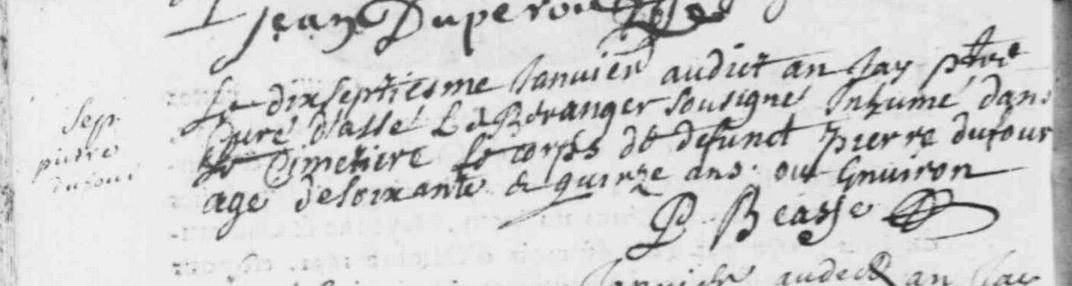 Jean Duperou
Le dixseptiesme Janvier audict an Jay ptre
Curé d'assé Le Beranger sousigné Inhumé dans
le Cimetiere le corps de defunct pierre dufour
agé de soixante & quinze ans ou Environ
P Beasse
Sep.
pierre
dufour
Janvier audict an Jay